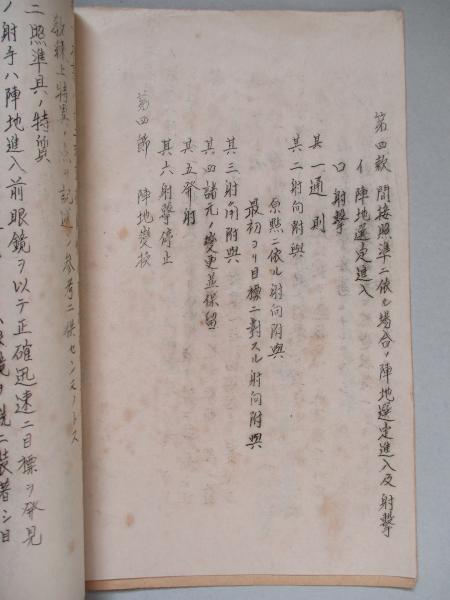 第四款 間接照準ニ依ル場合ノ陣地選定進入及射撃
イ 陣地選定進入
ロ 射撃
其一 通則
其二 射向附與
原点ニ依ル射向附與
最初ヨリ目標ニ対スル射向附與
其三 射角附與
其四 諸元ノ変更並保留
其五 発射
其六 射撃停止
第四節 陣地変換
教練上特異ノ点ヲ記述 参考ニ供センモノトス
二 照準具ノ特質
射手ハ陣地進入前眼鏡ヲ以テ正確迅速ニ目標ヲ発見
装着シ目